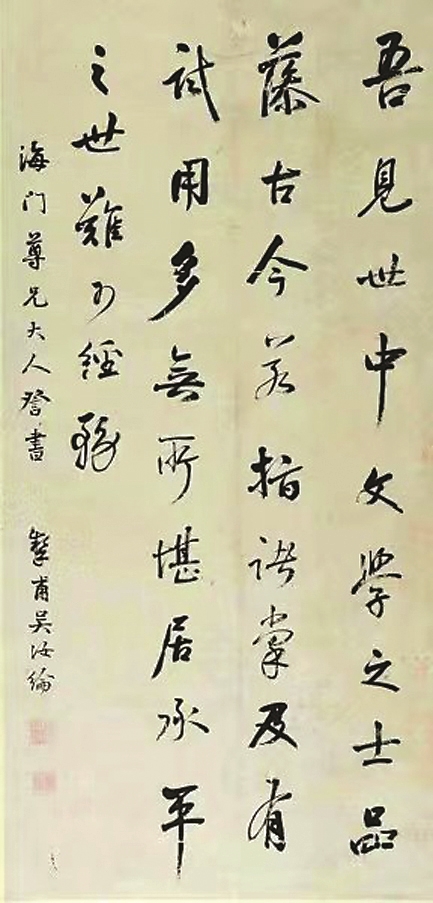 吾見世中文學之士品
藻古今若指諸掌及有
試用多無所堪居承平
之世難可經務
海門尊兄大人詧書 摯甫吳汝綸